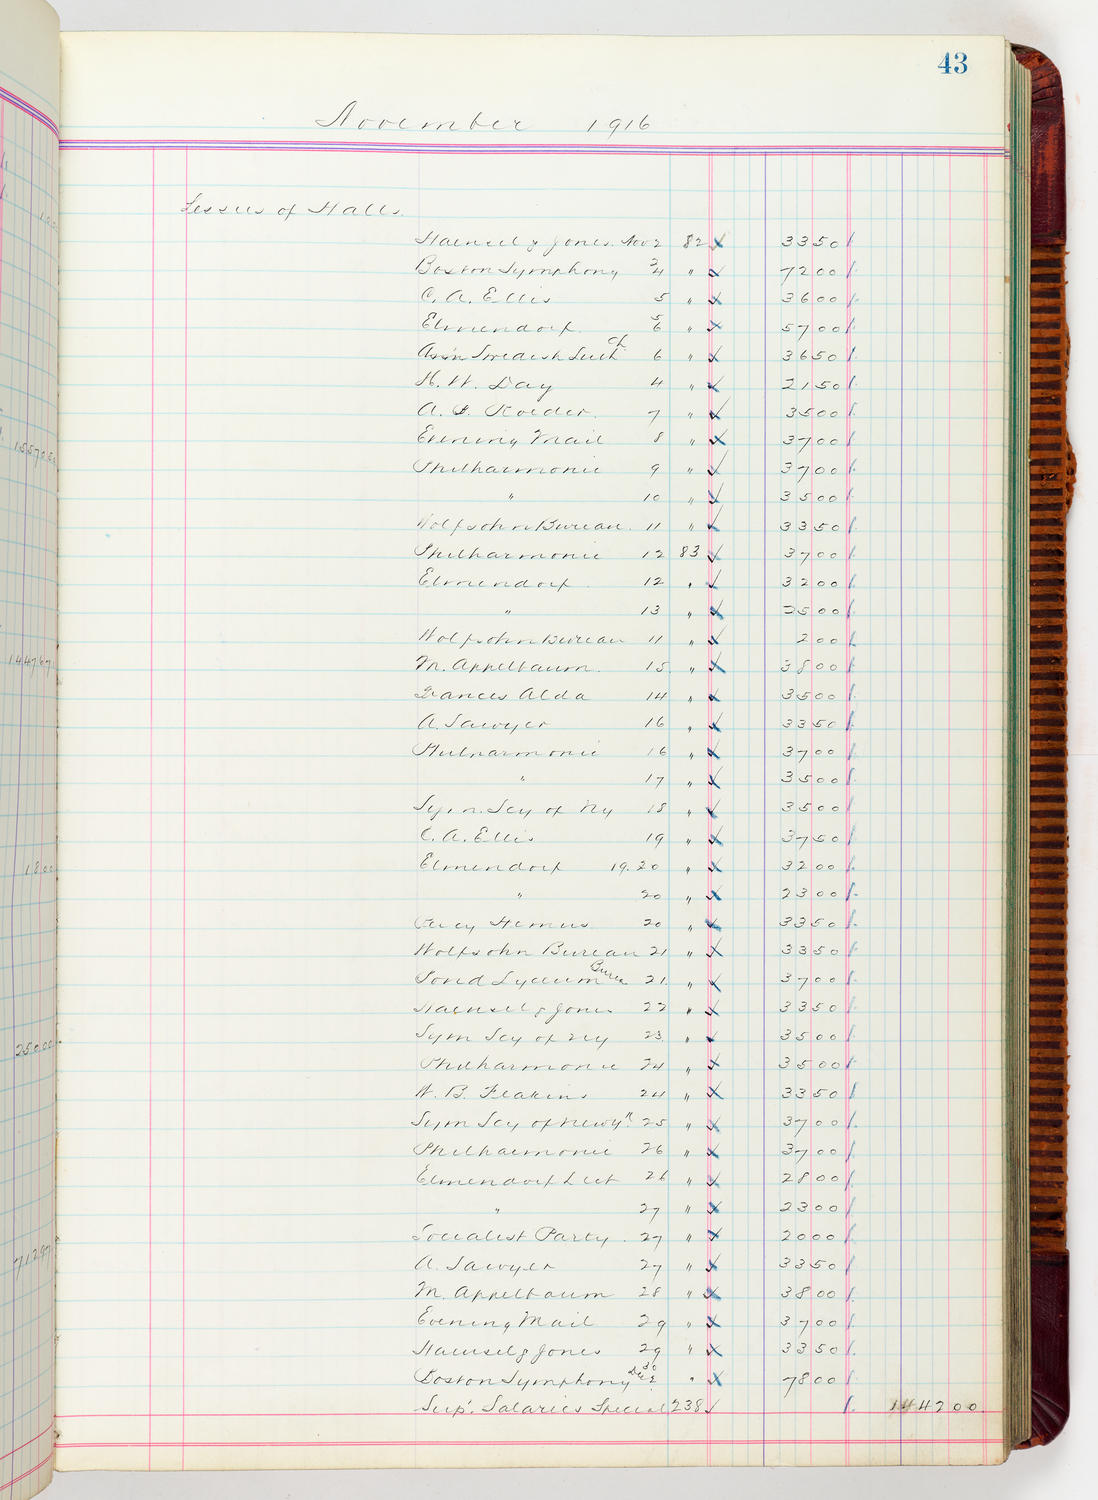 43
November 1916
Lessees of Halls.
Haensel & Jones. Nov 2 82 33 50
Boston Symphony 3/4 " 72 00
C. A. Ellis 5 " 36 00
Elmendorf. 5/6 " 57 00
Ass'n Swedish Luth Ch 6 " 36 50
H. W. Day 4 " 21 50
A. Roeder. 7 " 35 00
Evening Mail 8 " 37 00
Philharmonic 9 " 37 00
" 10 " 35 00
Wolfsohn Bureau. 11 " 33 50
Philharmonic 12 83 37 00
Elmendorf. 12 " 32 00
" 13 " 25 00
Wolfsohn Bureau 11 " 2 00
M. Appelbaum. 15. " 38 00
Frances Alda 14 " 35 00
A. Sawyer 16 " 33 50
Philharmonic 16 " 37 00
" 17 " 35 00
Sym. Scy of Ny 18 " 35 00
C. A. Ellis 19 " 37 50
Elmendorf 19.20 " 32 00
" 20 " 23 00
Percy Hemus 20 " 33 50
Wolfsohn Bureau 21 " 33 50
Pond Lyceum Bureau 21. " 37 00
Haensel & Jones 22 " 33 50
Sym Scy of Ny 23. " 35 00
Philharmonic 24 " 35 00
W. B. Feakins 24 " 33 50
Sym Scy of New Yk 25 " 37 00
Philharmonic 26 " 37 00
Elmendorf Lect 26 " 28 00
" 27 " 23 00
Socialist Party. 27 " 20 00
A. Sawyer 27 " 33 50
M. Appelbaum 28 " 38 00
Evening Mail 29 " 37 00
Haensel & Jones 29 " 33 50
Boston Symphony 30 Dec 2 " 78 00
Sup'. Salaries Special 238 1442 00